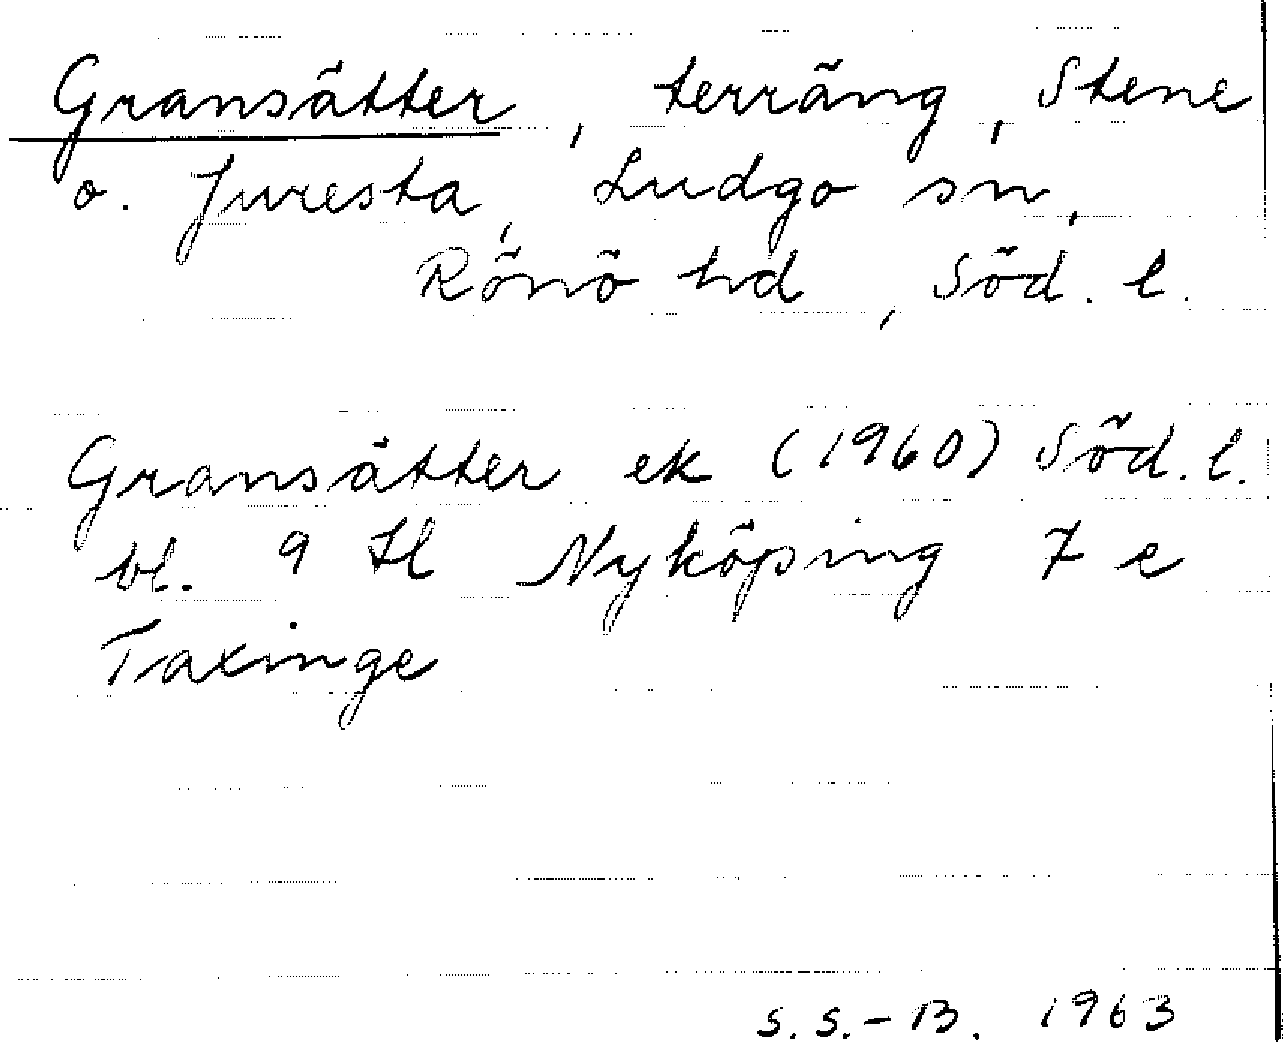 Gransätter, terräng, Stene
o. Juresta, Ludgo sn,
Rönö hd, Söd. l.
Gransätter ek (1960) Söd. l.
bl. 9 H Nyköping 7 e
Taxinge
S. S.-B. 1963